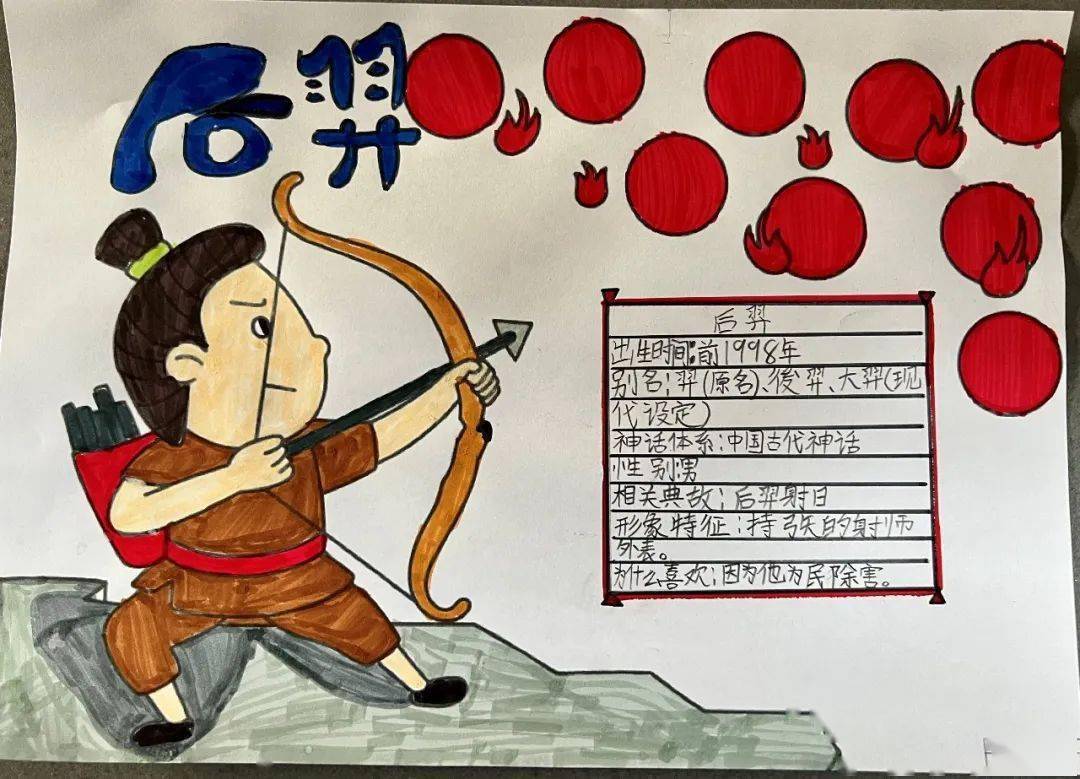 后羿
后羿
出生时间:前1998年
别名:羿(原名)、後羿、大羿(现
代设定)
神话体系:中国古代神话
性别男
相关典故:后羿射日
形象特征:持弓矢的射师
外表。
为什么喜欢:因为他为民除害。